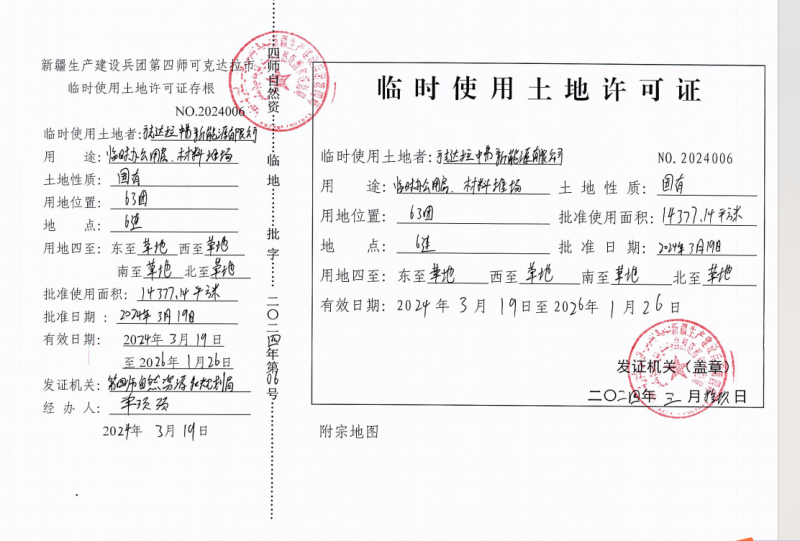 新疆生产建设兵团第四师可克达拉市
临时使用土地许可证存根
NO.2024006
临时使用土地者:
用 途: 临时办公用房、材料堆场
土地性质: 国有
用地位置: 63团
地 点: 6连
用地四至: 东至草地 西至草地
南至草地 北至草地
批准使用面积: 14377.14平方米
批准日期: 2024年3月19日
有效日期: 2024年3月19日
至2026年1月26日
发证机关: 第四师自然资源和规划局
经 办 人:
2024年3月19日
四师自然资 临 地 批 字 二〇二四年第06号
临时使用土地许可证
临时使用土地者: NO.2024006
用 途: 临时办公用房、材料堆场 土地性质: 国有
用地位置: 63团 批准使用面积: 14377.14平方米
地 点: 6连 批准日期: 2024年3月19日
用地四至: 东至草地 西至草地 南至草地 北至草地
有效日期: 2024年3月19日至2026年1月26日
发证机关(盖章)
二〇二四年三月拾玖日
附宗地图